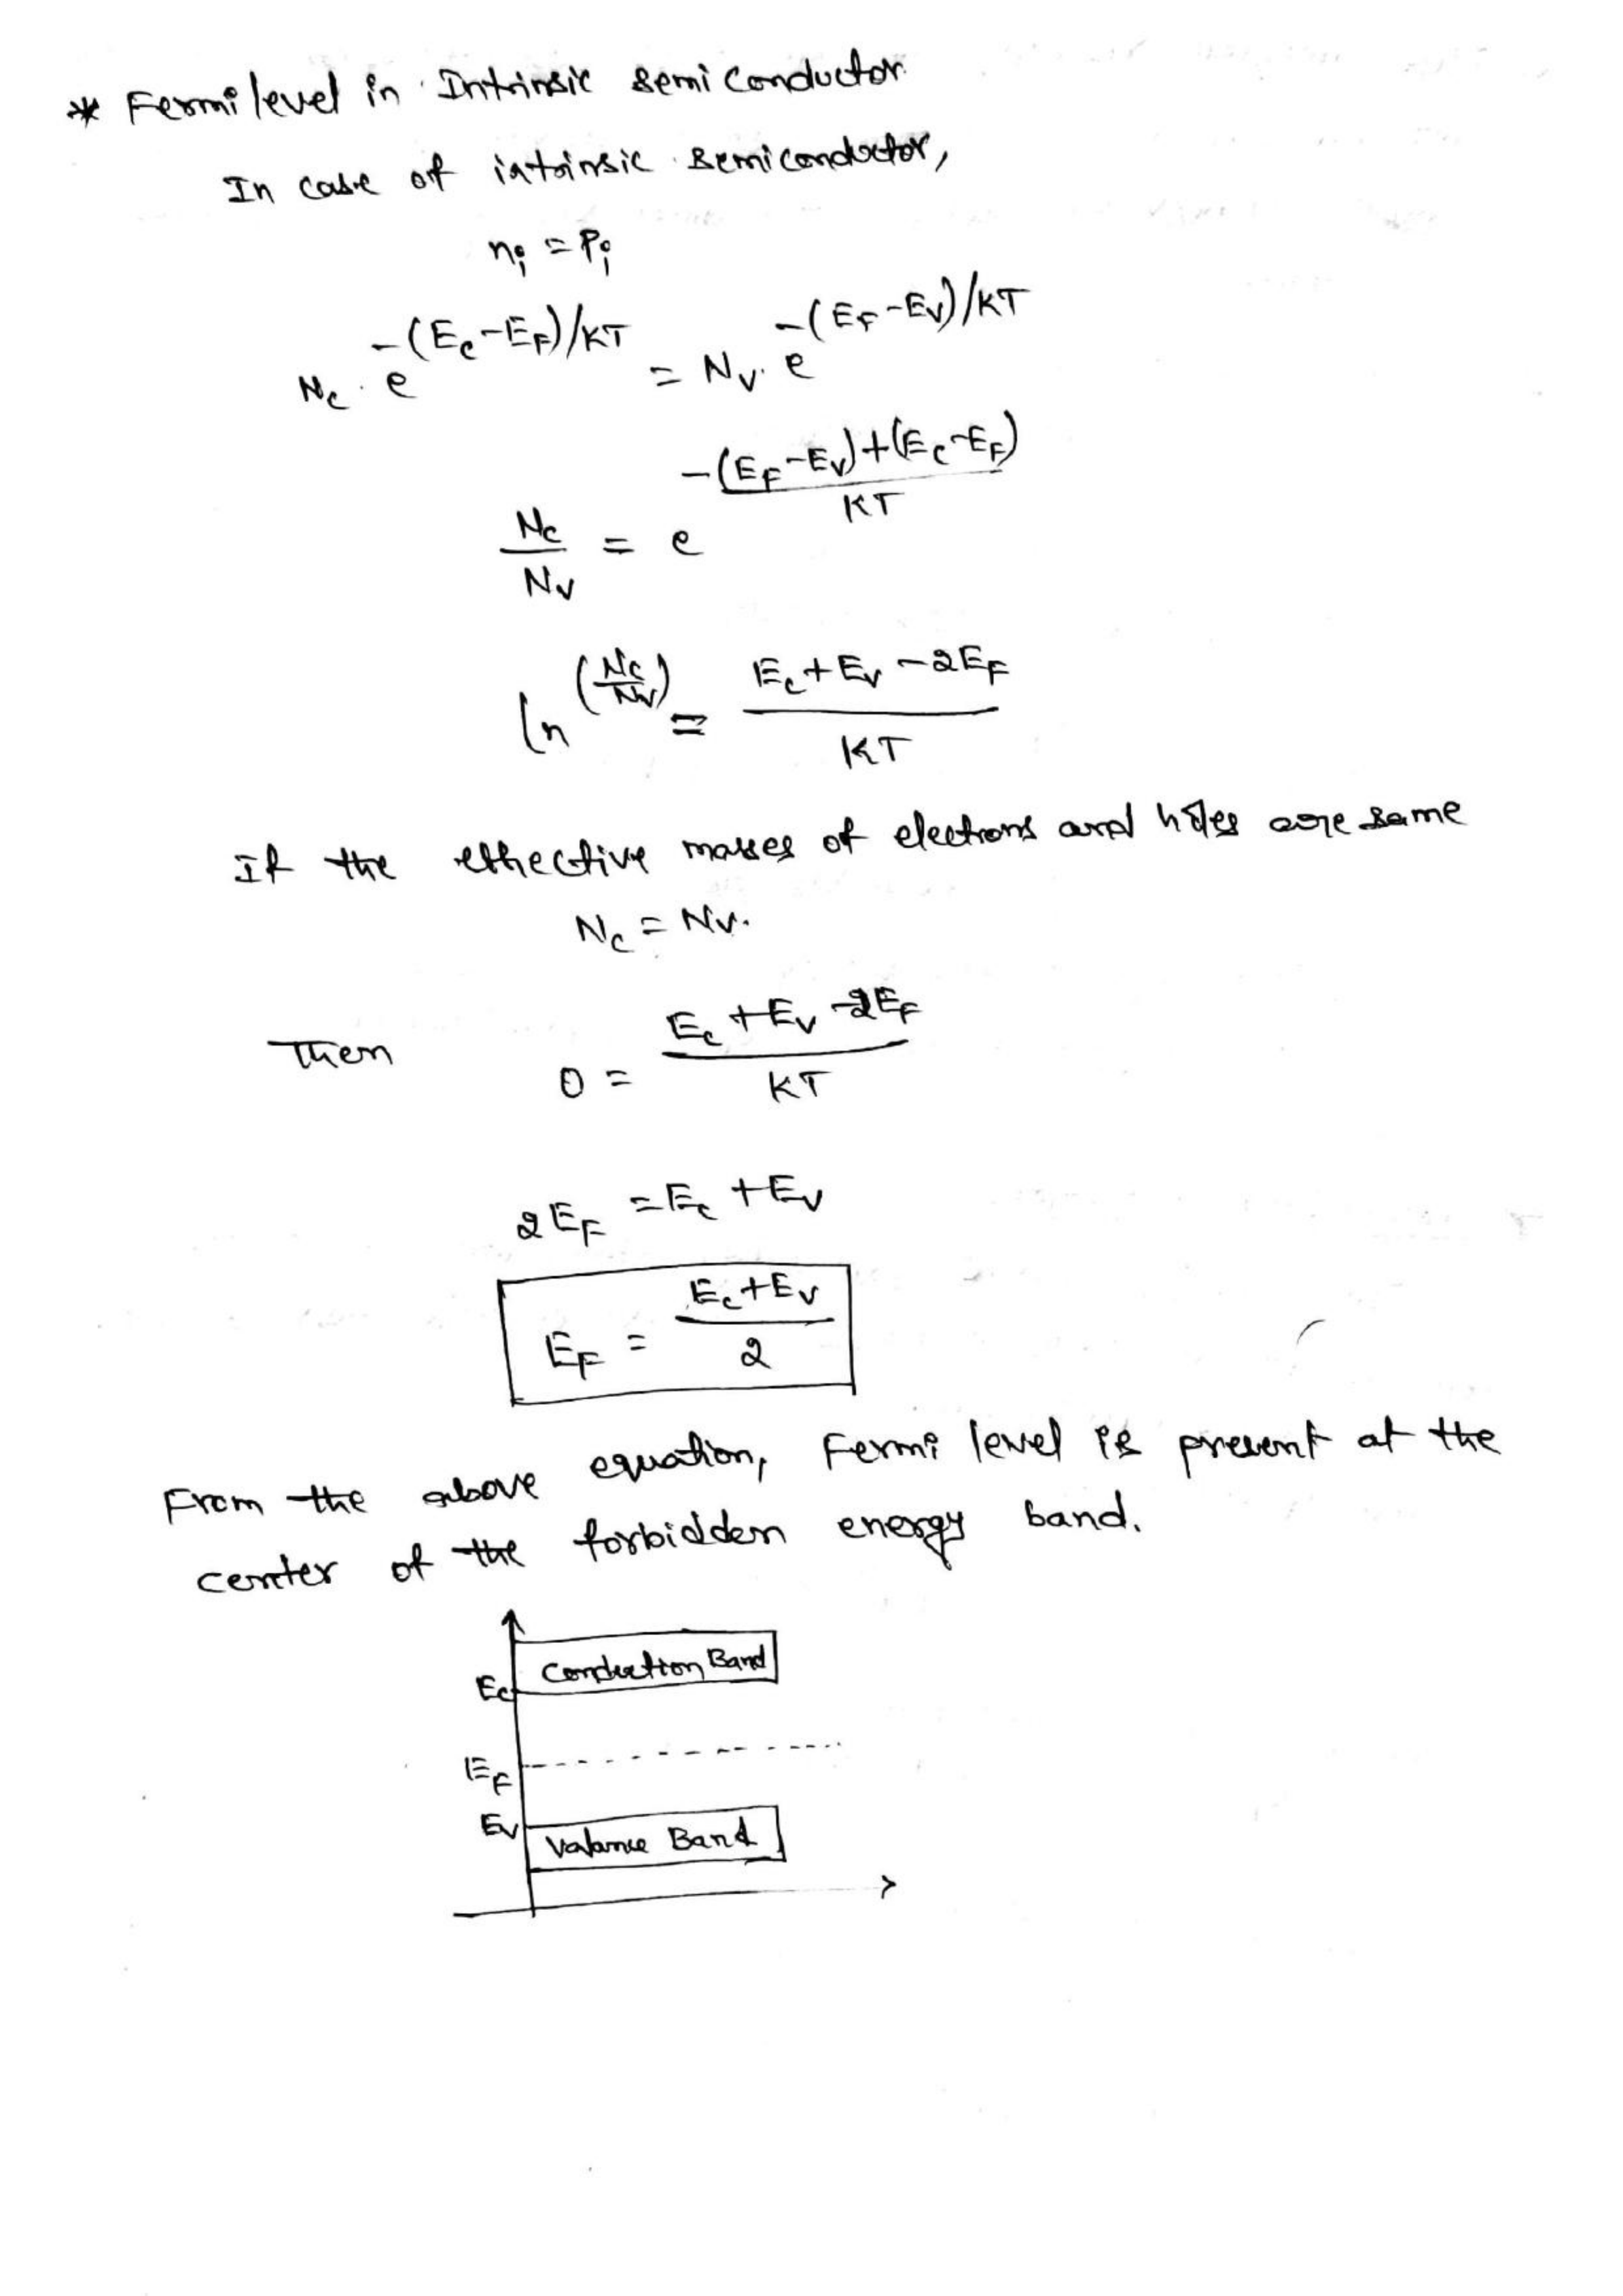 * Fermi level in Intrinsic semiconductor
In case of intrinsic semiconductor,
nᵢ = Pᵢ
N_C · e^(-(E_C - E_F)/KT) = N_V · e^(-(E_F - E_V)/KT)
N_C/N_V = e^((-(E_F - E_V) + (E_C - E_F))/KT)
ln^(N_C/N_V) = (E_C + E_V - 2E_F)/KT
If the effective masses of electrons and holes are same
N_C = N_V.
Then 0 = (E_C + E_V - 2E_F)/KT
2E_F = E_C + E_V
E_F = (E_C + E_V)/2
From the above equation, Fermi level is present at the
center of the forbidden energy band.
E_C Conduction Band
E_F
E_V Valance Band